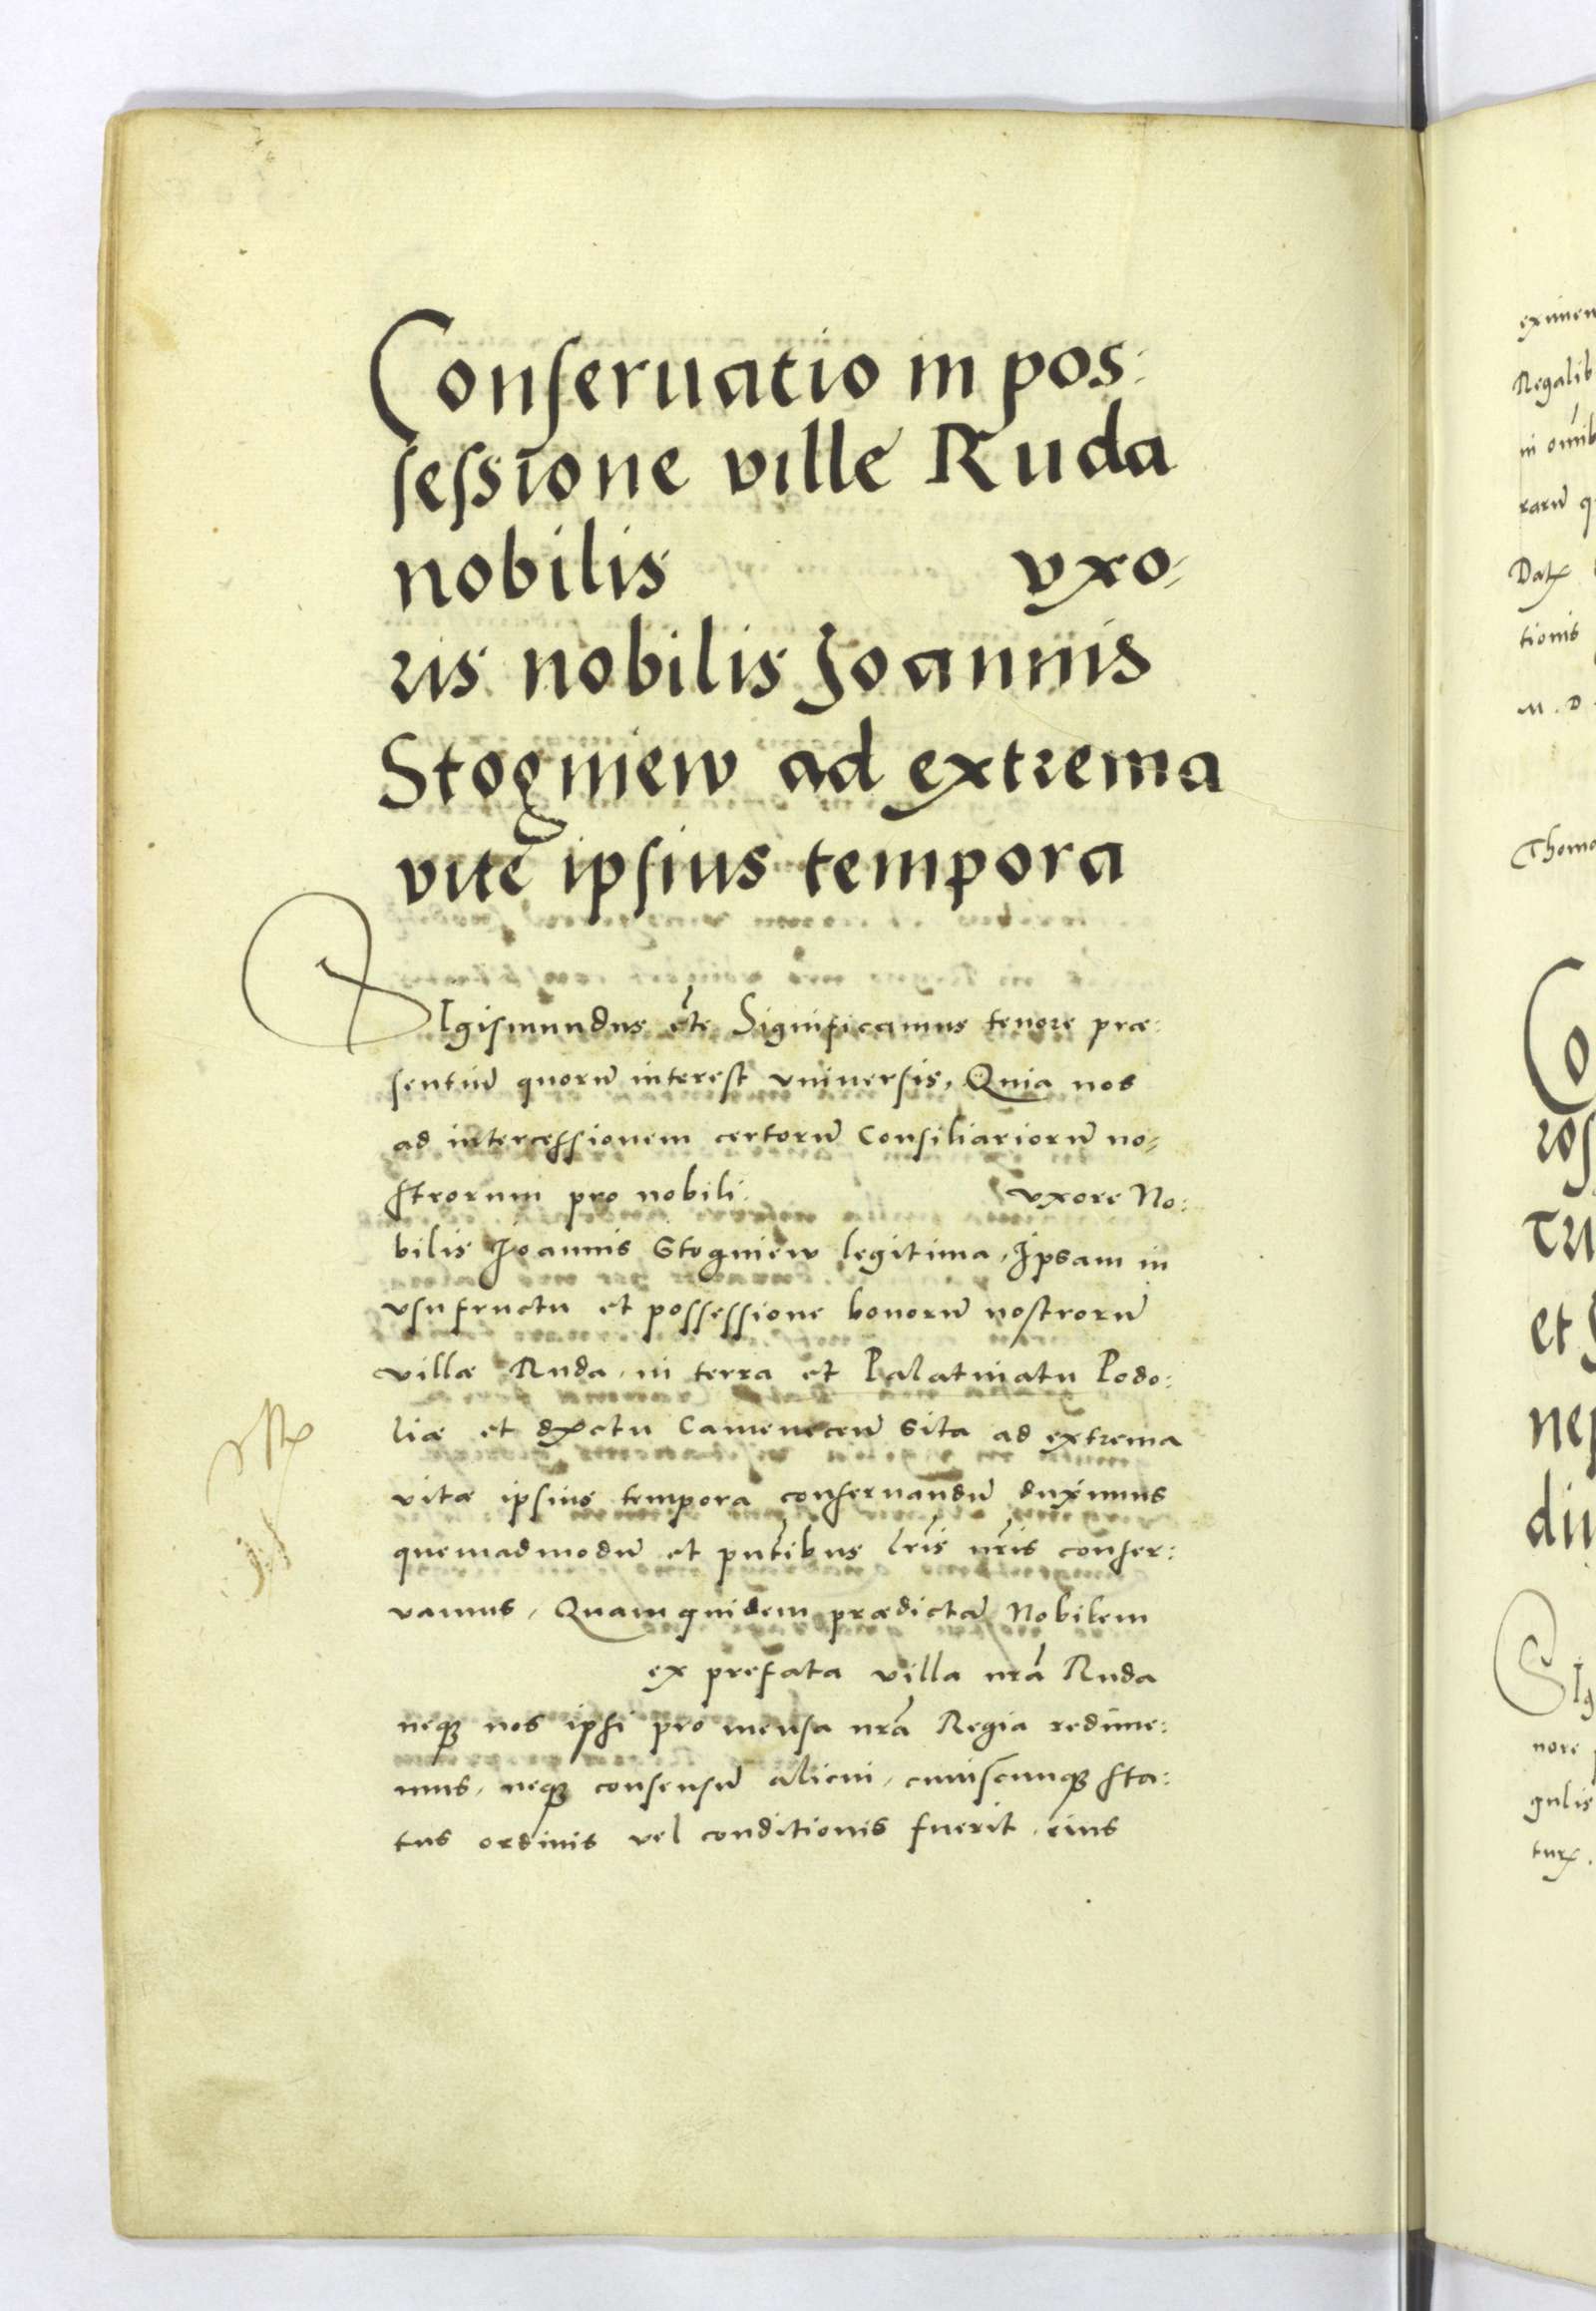 Conseruatio in pos:
sessione villę Ruda
nobilis vxo-
ris nobilis Joannis
Stogniew ad extrema
vitę ipsius tempora
SIgismundus etc̃ Significamus tenore præ:
sentiũ quorũ interest vniuersis, Quia nos
ad intercessionem certorũ Consiliariorũ no-
strorum pro nobili vxore No:
bilis Joannis Stogniew legitima, Ipsam in
vsufructu et possessione bonorũ nostrorũ
villæ Ruda, in terra et Palatinatu Podo:
liæ et dꝝctu Camenecen̄ sita ad extrema
vitæ ipsius tempora conseruandũ duximus
quemadmodũ et pñtibus lr̃is nr̃is conser:
vamus, Quam quidem prædictã Nobilem
ex prefata villa nrã Ruda
neqꝫ nos ipsi pro mensa nrã Regia redime:
mus, neqꝫ consensũ alicui, cuiuscunqꝫ sta:
tus ordinis vel conditionis fuerit, eius
eximen
Regalib
in omib
rarũ q
Datꝝ
tionis
M. D
Thoma
Co
ros
et
nep
SIg
nore
gulis
turꝝ.